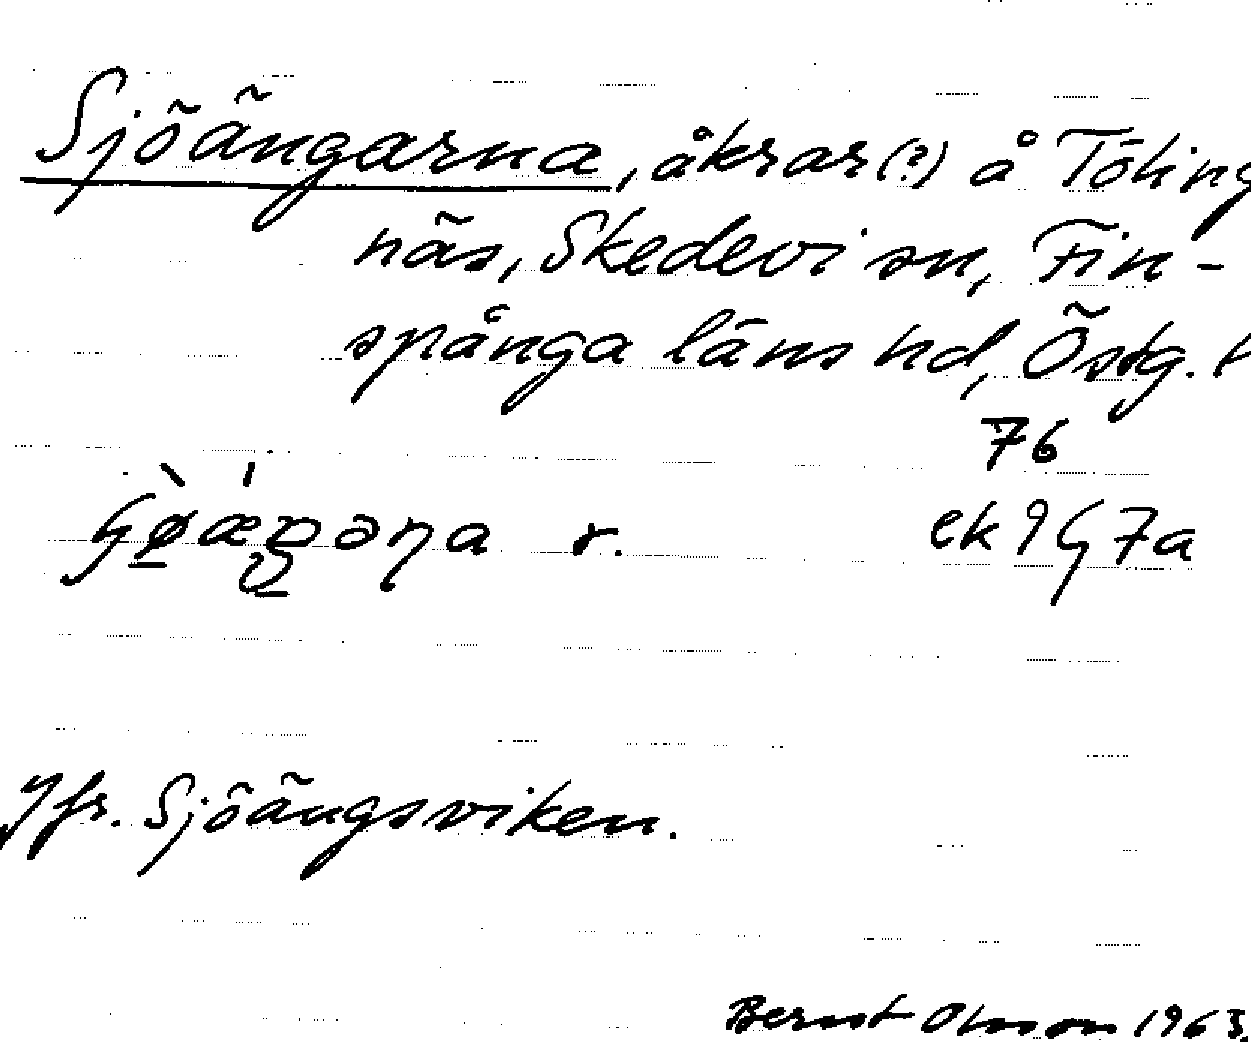 Sjöängarna, åkrar(?) å Töling
näs, Skedevi sn, Fin-
spånga läns hd, Östg. l
76
r. ek 9G7a
Jfr. Sjöängsviken.
Bernt Olsson 1963.